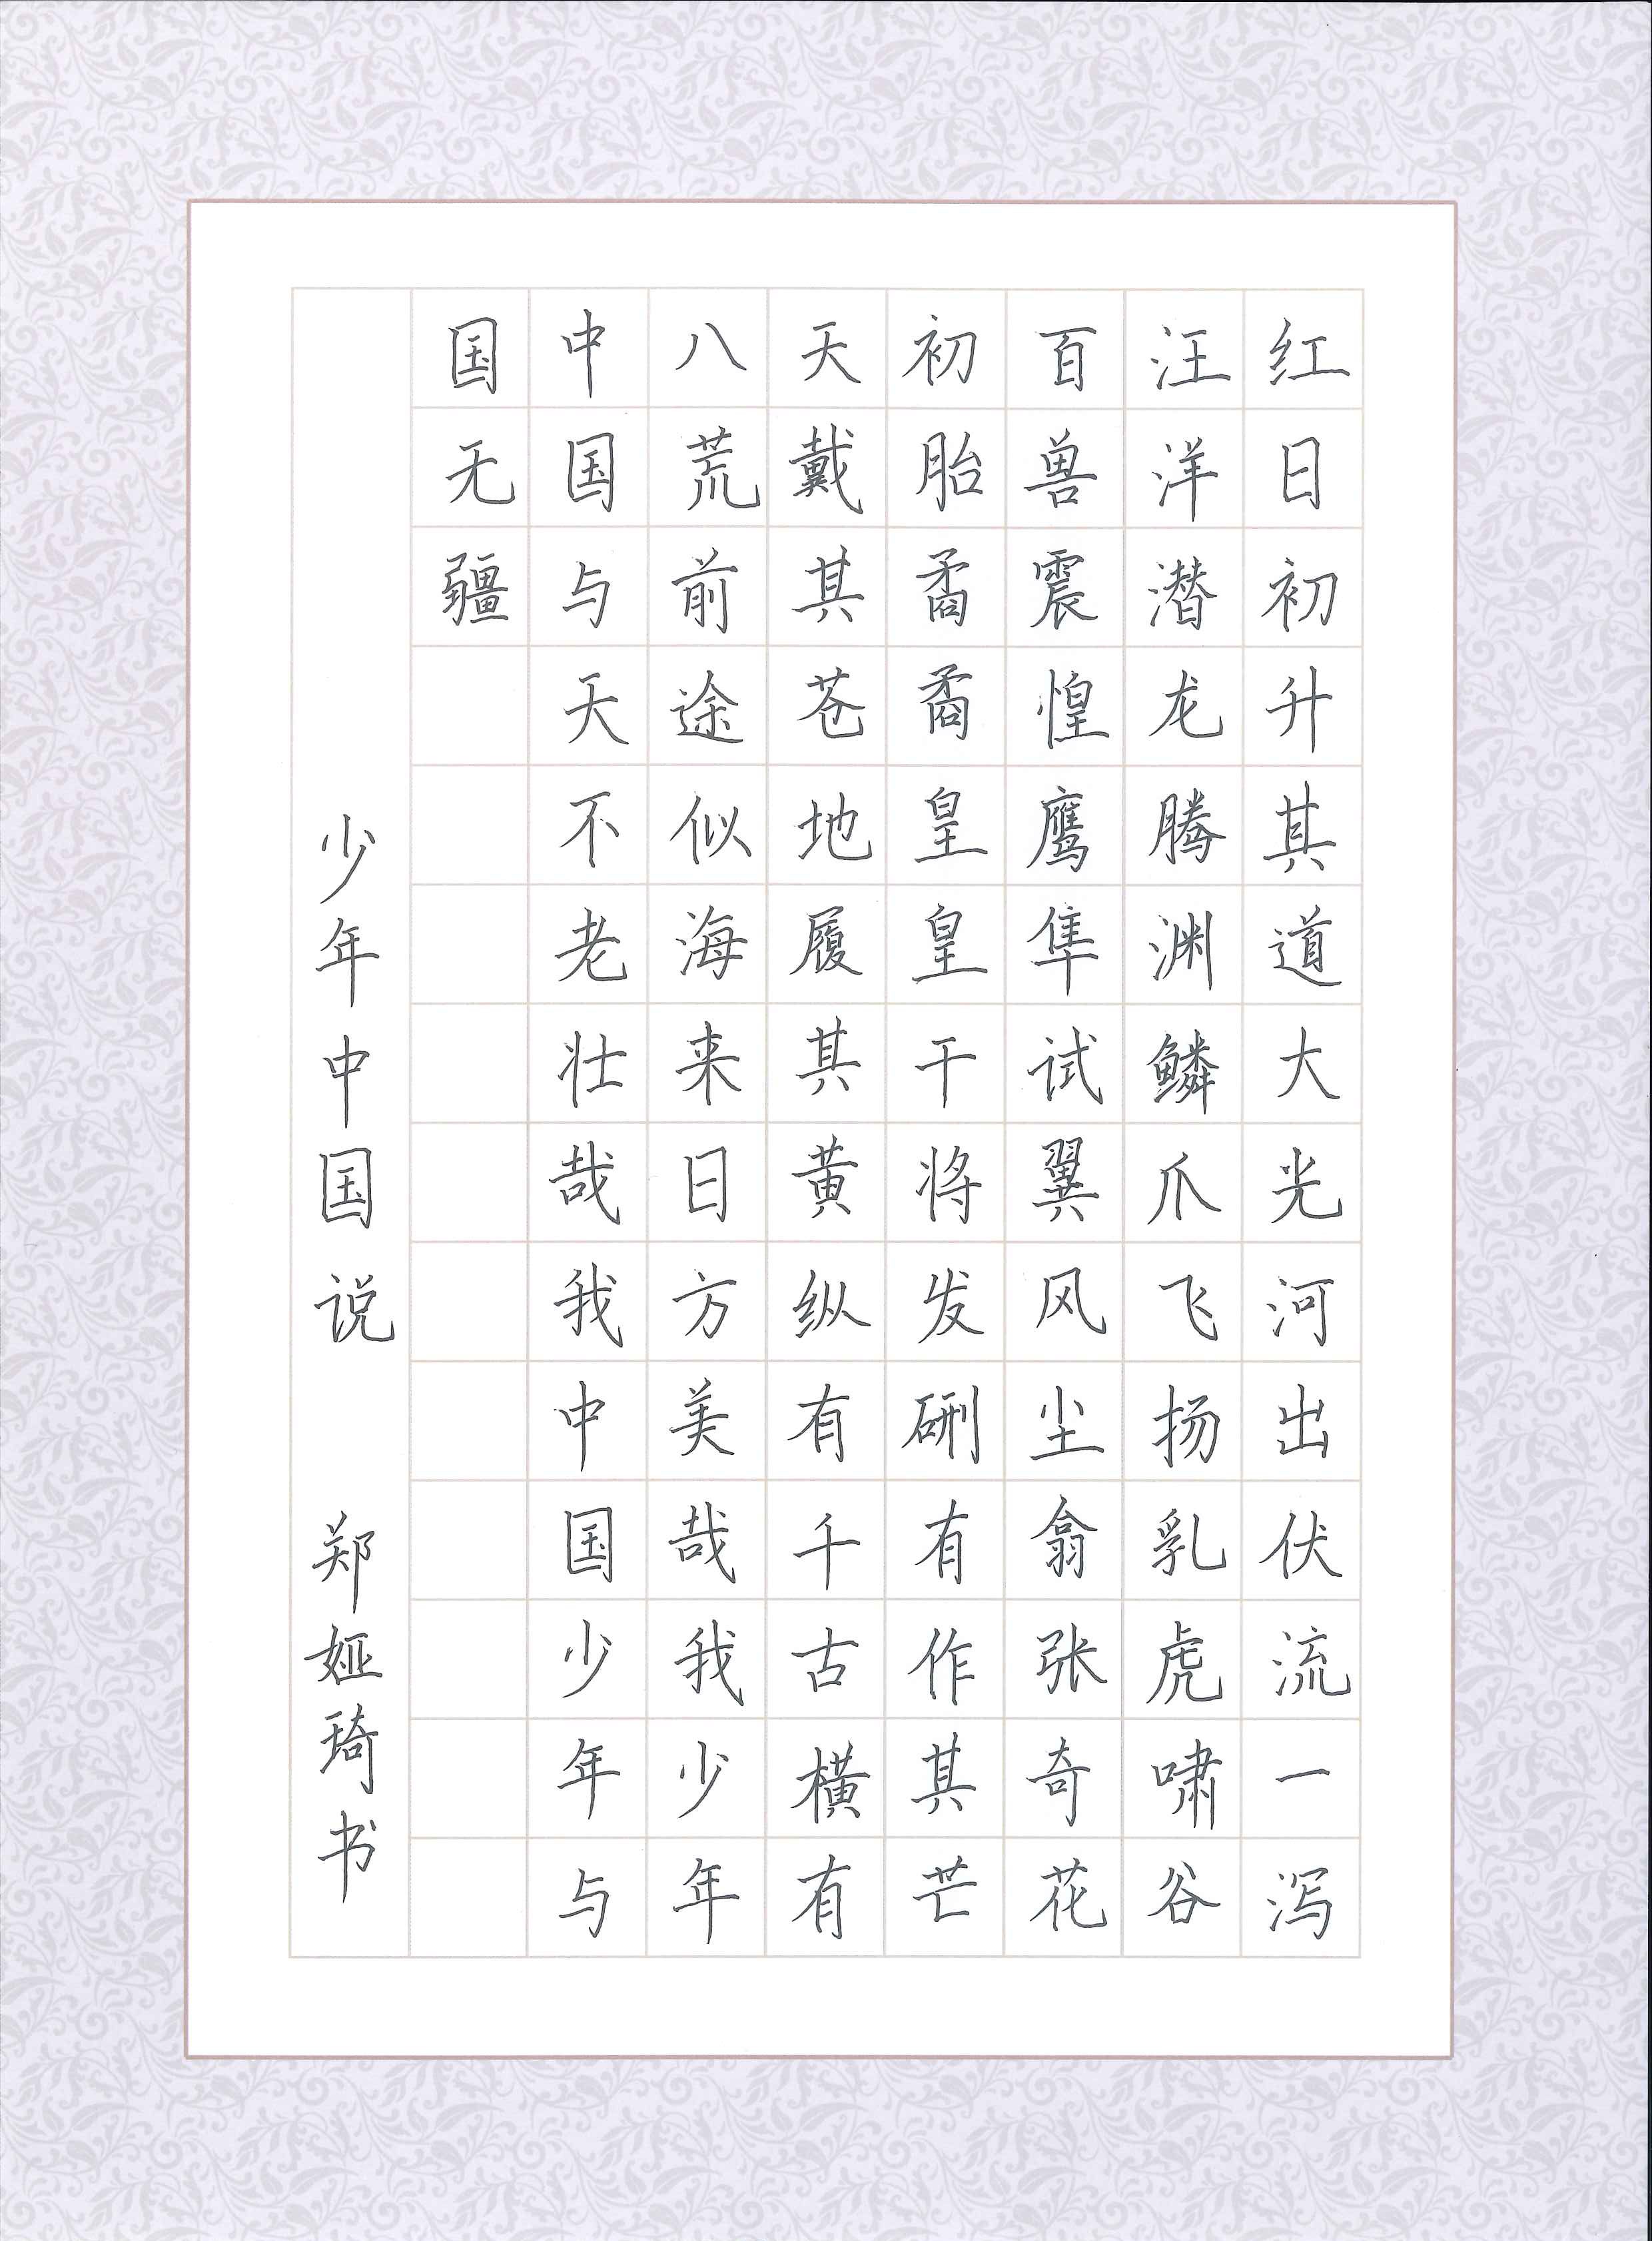 红日初升其道大光河出伏流一泻
汪洋潜龙腾渊鳞爪飞扬乳虎啸谷
百兽震惶鹰隼试翼风尘翕张奇花
初胎矞矞皇皇干将发硎有作其芒
天戴其苍地履其黄纵有千古横有
八荒前途似海来日方美哉我少年
中国与天不老壮哉我中国少年与
国无疆
少年中国说 郑娅琦书